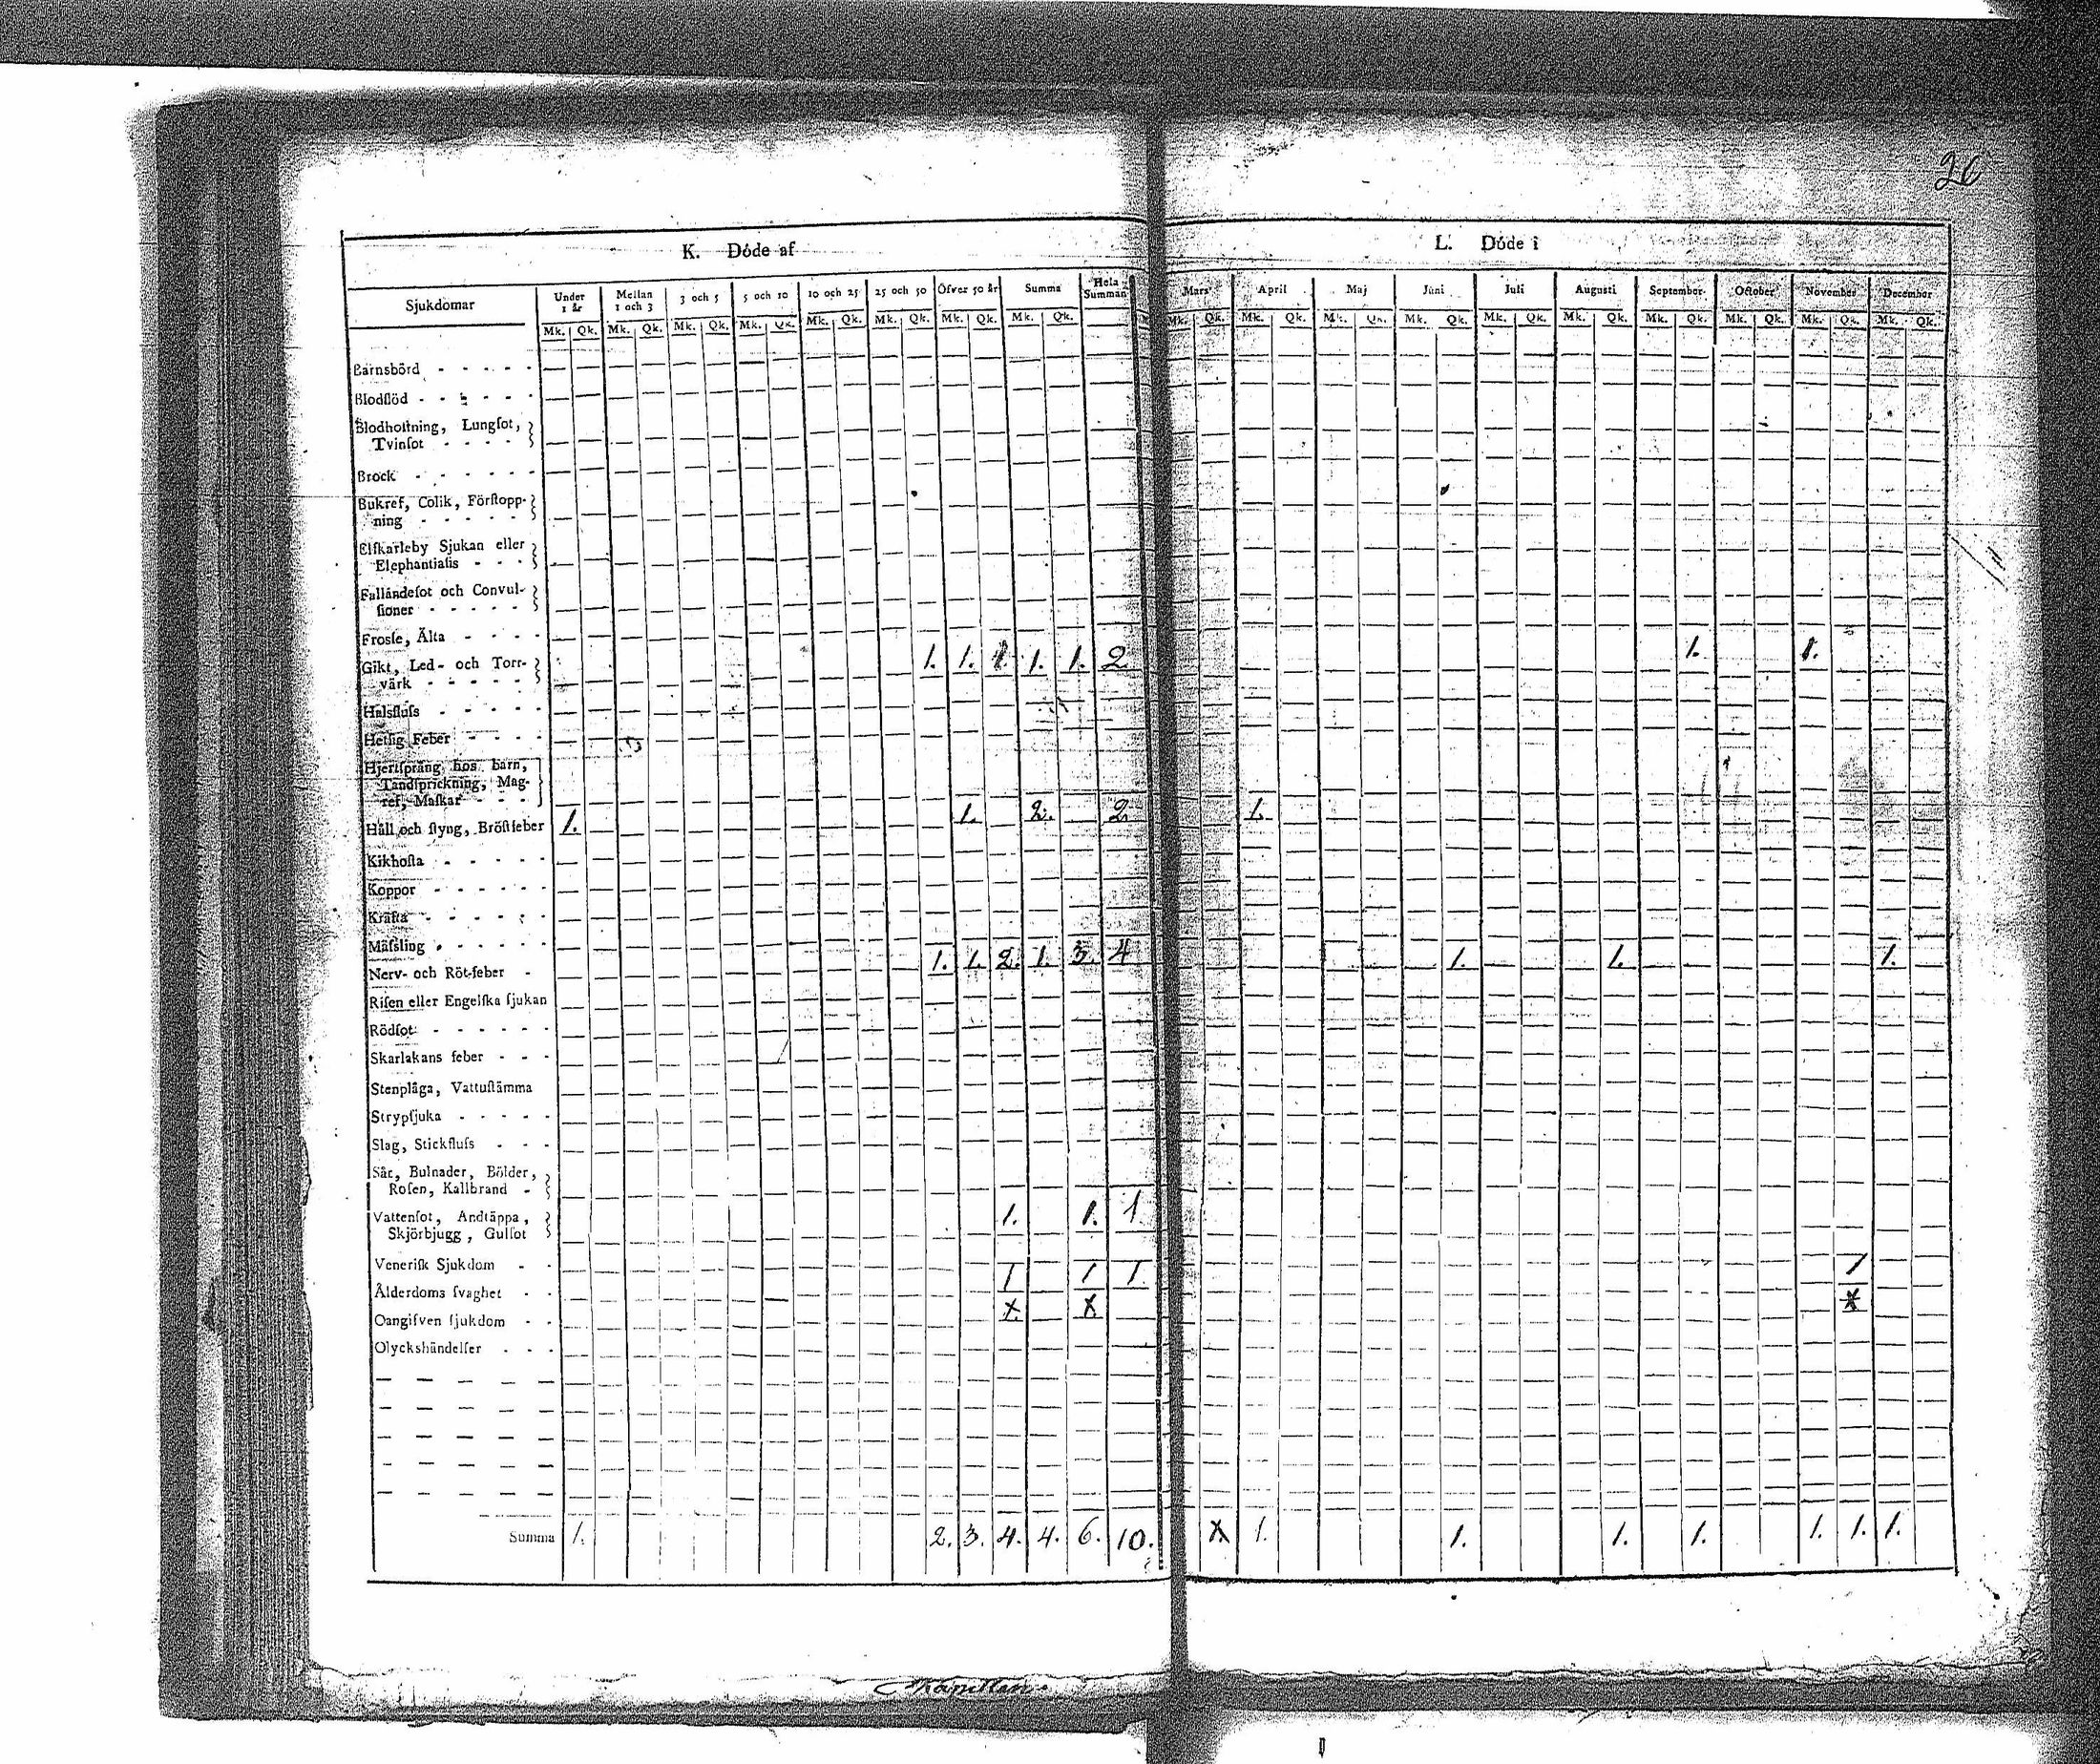 26
K. Döde af
L. Döde i
Sjukdomar
Under 1 år
Mellan 1 och 3
3 och 5
5 och 10
10 och 25
25 och 50
Öfver 50 år
Summa
Hela Summan
Mars
April
Maj
Juni
Juli
Augusti
September
October
November
December
Mk. Qk. Mk. Qk. Mk. Qk. Mk. Qk. Mk. Qk. Mk. Qk. Mk. Qk. Mk. Qk.
Mk. Qk. Mk. Qk. Mk. Qk. Mk. Qk. Mk. Qk. Mk. Qk. Mk. Qk. Mk. Qk. Mk. Qk. Mk. Qk.
Barnsbörd
Blodflöd
Blodhoſtning, Lungſot,
Tvinſot
Brock
Bukref, Colik, Förſtopp-
ning
Elfkarleby Sjukan eller
Elephantiaſis
Fallandeſot och Convul-
ſioner
Frosſe, Älta
Gikt, Led- och Torr-
värk
1. 1. 1 1. 1. 2 1. 1.
Halsfluſs
Hetſig Feber
Hjertſprång hos barn,
Tandſprickning, Mag-
ref, Maſkar
Håll och ſtyng, Bröſtfeber 1. 1. 2. 2. 1.
Kikhoſta
Koppor
Kräfta
Mäſsling
Nerv- och Röt-feber 1. 1. 2. 1. 3. 4 1. 1. 1.
Riſen eller Engelſka ſjukan
Rödſot
Skarlakans feber
Stenplåga, Vattuſtämma
Strypſjuka
Slag, Stickfluſs
Sår, Bulnader, Bölder,
Roſen, Kallbrand
Vattenſot, Andtäppa,
Skjörbjugg, Gulſot
1. 1. 1
Veneriſk Sjukdom
Ålderdoms ſvaghet 1 1 1 1
Oangifven ſjukdom
Olyckshändelſer
Summa 1. 2. 3. 4. 4. 6. 10. 1. 1. 1. 1. 1. 1. 1.